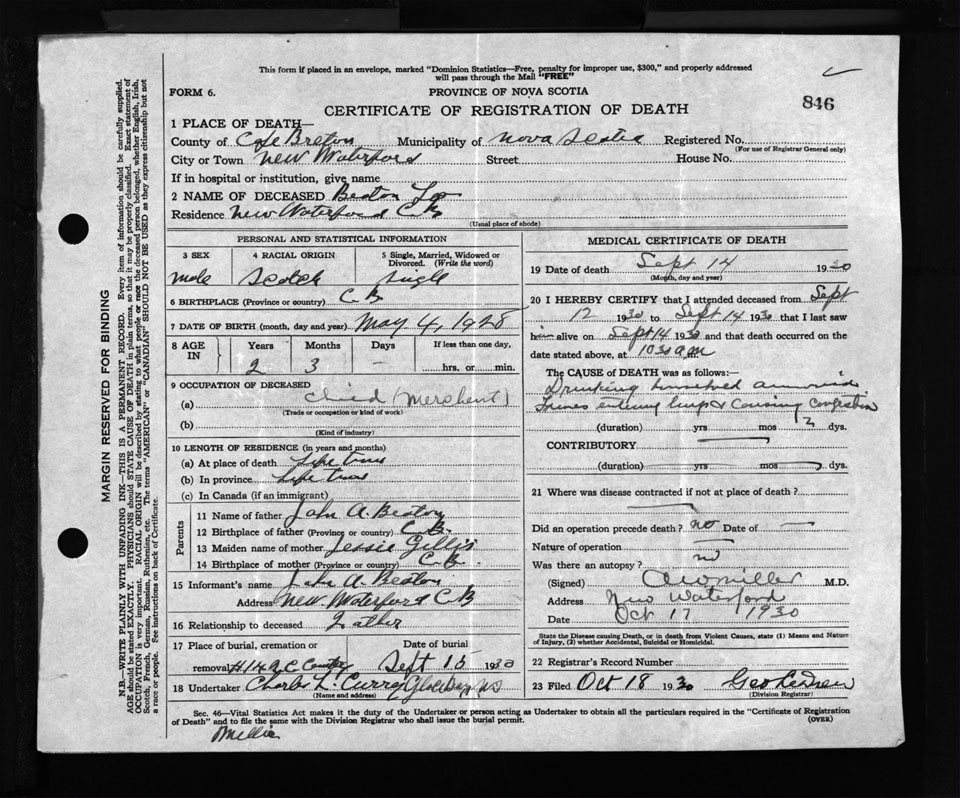 This form if placed in an envelope, marked "Dominion Statistics—Free, penalty for improper use, $300," and properly addressed
will pass through the Mail "FREE"
FORM 6.
PROVINCE OF NOVA SCOTIA
846
CERTIFICATE OF REGISTRATION OF DEATH
1 PLACE OF DEATH—
County of Cape Breton Municipality of Nova Scotia Registered No.
(For use of Registrar General only)
City or Town New Waterford Street House No.
If in hospital or institution, give name
2 NAME OF DECEASED Beaton
Residence New Waterford C B
(Usual place of abode)
PERSONAL AND STATISTICAL INFORMATION
3 SEX 4 RACIAL ORIGIN 5 Single, Married, Widowed or
Divorced. (Write the word)
male Scotch Single
6 BIRTHPLACE (Province or country) C B
7 DATE OF BIRTH (month, day and year) May 4, 1928
8 AGE IN Years Months Days If less than one day,
2 3 — hrs. or min.
9 OCCUPATION OF DECEASED
(a) Child (Merchant)
(Trade or occupation or kind of work)
(b)
(Kind of industry)
10 LENGTH OF RESIDENCE (in years and months)
(a) At place of death Life time
(b) In province Life time
(c) In Canada (if an immigrant)
Parents
11 Name of father John A. Beaton
12 Birthplace of father (Province or country) C. B.
13 Maiden name of mother Jessie Gillis
14 Birthplace of mother (Province or country) C. B.
15 Informant's name John A. Beaton
Address New Waterford C B
16 Relationship to deceased Father
17 Place of burial, cremation or Date of burial
removal Sept 15 1930
18 Undertaker Charles L. Curry Glace Bay N S
(Name and address)
MEDICAL CERTIFICATE OF DEATH
19 Date of death Sept 14 1930
(Month, day and year)
20 I HEREBY CERTIFY that I attended deceased from Sept
12 1930 to Sept 14 1930 that I last saw
him alive on Sept 14 1930 and that death occurred on the
date stated above, at 10 30 a m
The CAUSE of DEATH was as follows:—
Drinking household ammonia
Fumes entering lungs & causing congestion
(duration) yrs mos 2 dys.
CONTRIBUTORY
(duration) yrs mos dys.
21 Where was disease contracted if not at place of death?
Did an operation precede death? no Date of —
Nature of operation
Was there an autopsy? no
(Signed) Miller M.D.
Address New Waterford
Date Oct 17 1930
State the Disease causing Death, or in death from Violent Causes, state (1) Means and Nature
of Injury, (2) whether Accidental, Suicidal or Homicidal.
22 Registrar's Record Number
23 Filed Oct 18 1930 Geo
(Division Registrar)
Sec. 46—Vital Statistics Act makes it the duty of Undertaker or persons acting as Undertaker to obtain all the particulars required in the "Certificate of Registration
of Death" and to file the same with the Division Registrar who shall issue the burial permit. (OVER)
MARGIN RESERVED FOR BINDING
N.B.—WRITE PLAINLY WITH UNFADING INK—THIS IS A PERMANENT RECORD. Every item of information should be carefully supplied.
AGE should be stated EXACTLY. PHYSICIANS should STATE CAUSE OF DEATH in plain terms, so that it may be properly classified. Exact statement of
OCCUPATION is very important. RACIAL ORIGIN will be described by stating to what people or race the deceased person belonged, whether English, Irish,
Scotch, French, German, Russian, Ruthenian, etc. The terms "AMERICAN" or "CANADIAN" SHOULD NOT BE USED as they express citizenship but not
a race or people. See instructions on back of Certificate.